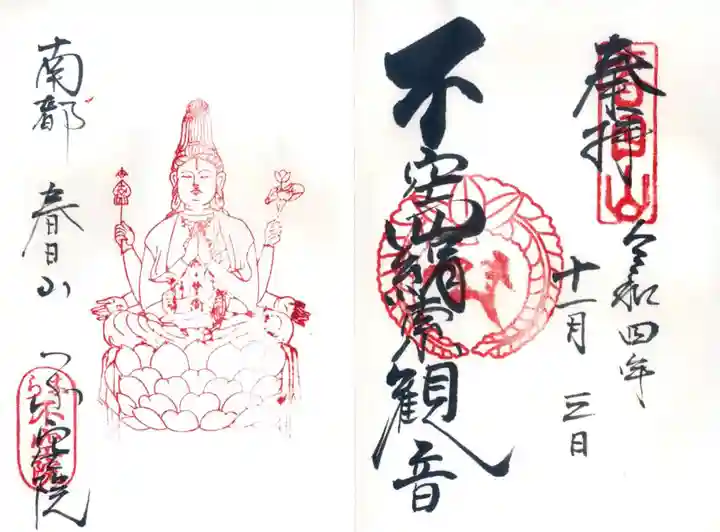 奉拝
春日山
令和四年
十一月 三日
不空羂索観音
南都 春日山
不空院